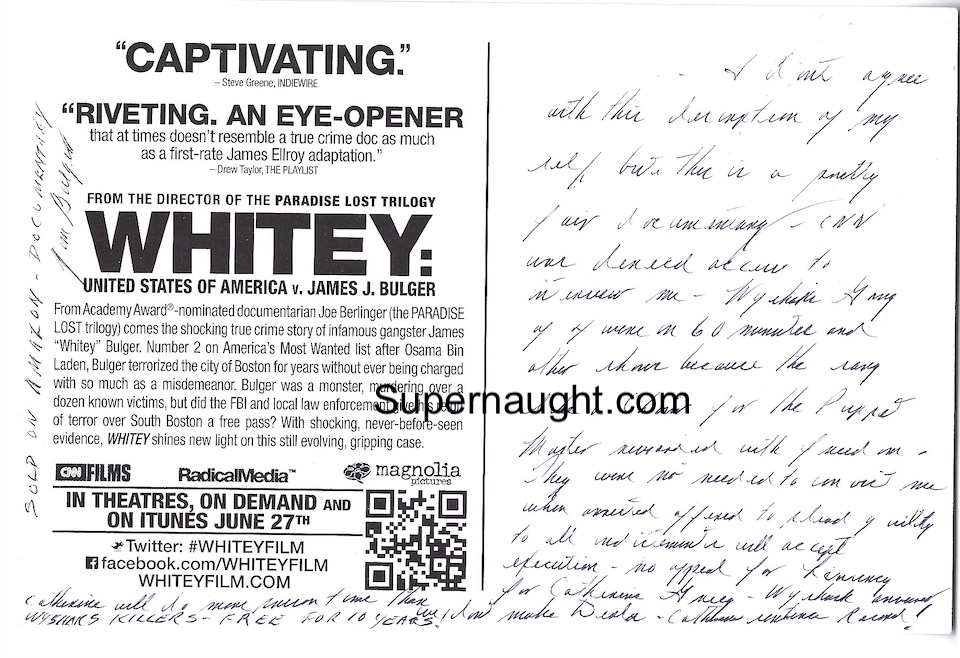 "CAPTIVATING."
– Steve Greene, INDIEWIRE
"RIVETING. AN EYE-OPENER
that at times doesn't resemble a true crime doc as much
as a first-rate James Ellroy adaptation."
– Drew Taylor, THE PLAYLIST
FROM THE DIRECTOR OF THE PARADISE LOST TRILOGY
WHITEY:
UNITED STATES OF AMERICA v. JAMES J. BULGER
From Academy Award®-nominated documentarian Joe Berlinger (the PARADISE
LOST trilogy) comes the shocking true crime story of infamous gangster James
"Whitey" Bulger. Number 2 on America's Most Wanted list after Osama Bin
Laden, Bulger terrorized the city of Boston for years without ever being charged
with so much as a misdemeanor. Bulger was a monster, murdering over a
dozen known victims, but did the FBI and local law enforcement give his reign
of terror over South Boston a free pass? With shocking, never-before-seen
evidence, WHITEY shines new light on this still evolving, gripping case.
CNN FILMS RadicalMedia™ magnolia
pictures
IN THEATRES, ON DEMAND AND
ON ITUNES JUNE 27TH
Twitter: #WHITEYFILM
facebook.com/WHITEYFILM
WHITEYFILM.COM
SOLD ON AMAZON - DOCUMENTARY
Jim Bulger
I don't agree
with this description of my
self but this is a pretty
fair documentary - CNN
was denied access to
interview me -
were on 60 minutes and
other shows because they sang
for the Puppet
Master rewarded with freedom -
They were no needed to convict me
when arrested offered to plead guilty
to all indictments will accept
execution - no appeal for Leniency
for Catherine Greig - Wyshak answered
we don't make Deals - Catherine sentence Record!
Catherine will do more prison time than
WYSHAKS KILLERS - FREE FOR 10 YEARS!
Supernaught.com